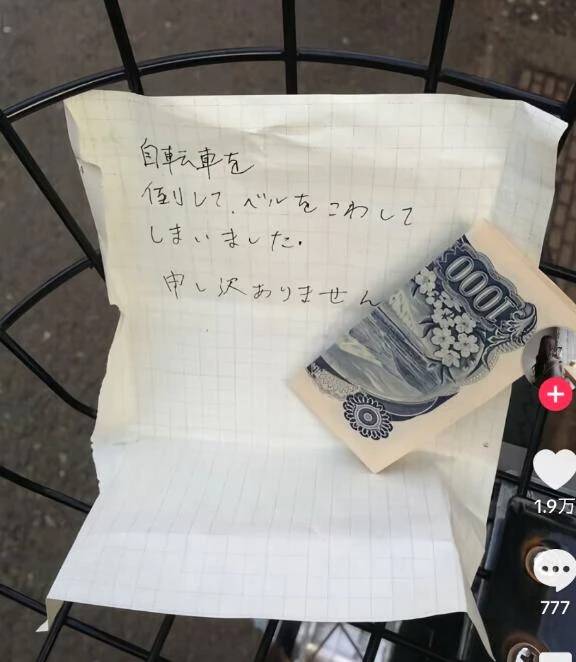 自転車を
倒して、ベルをこわして
しまいました.
申し訳ありません
1000
1.9万
777